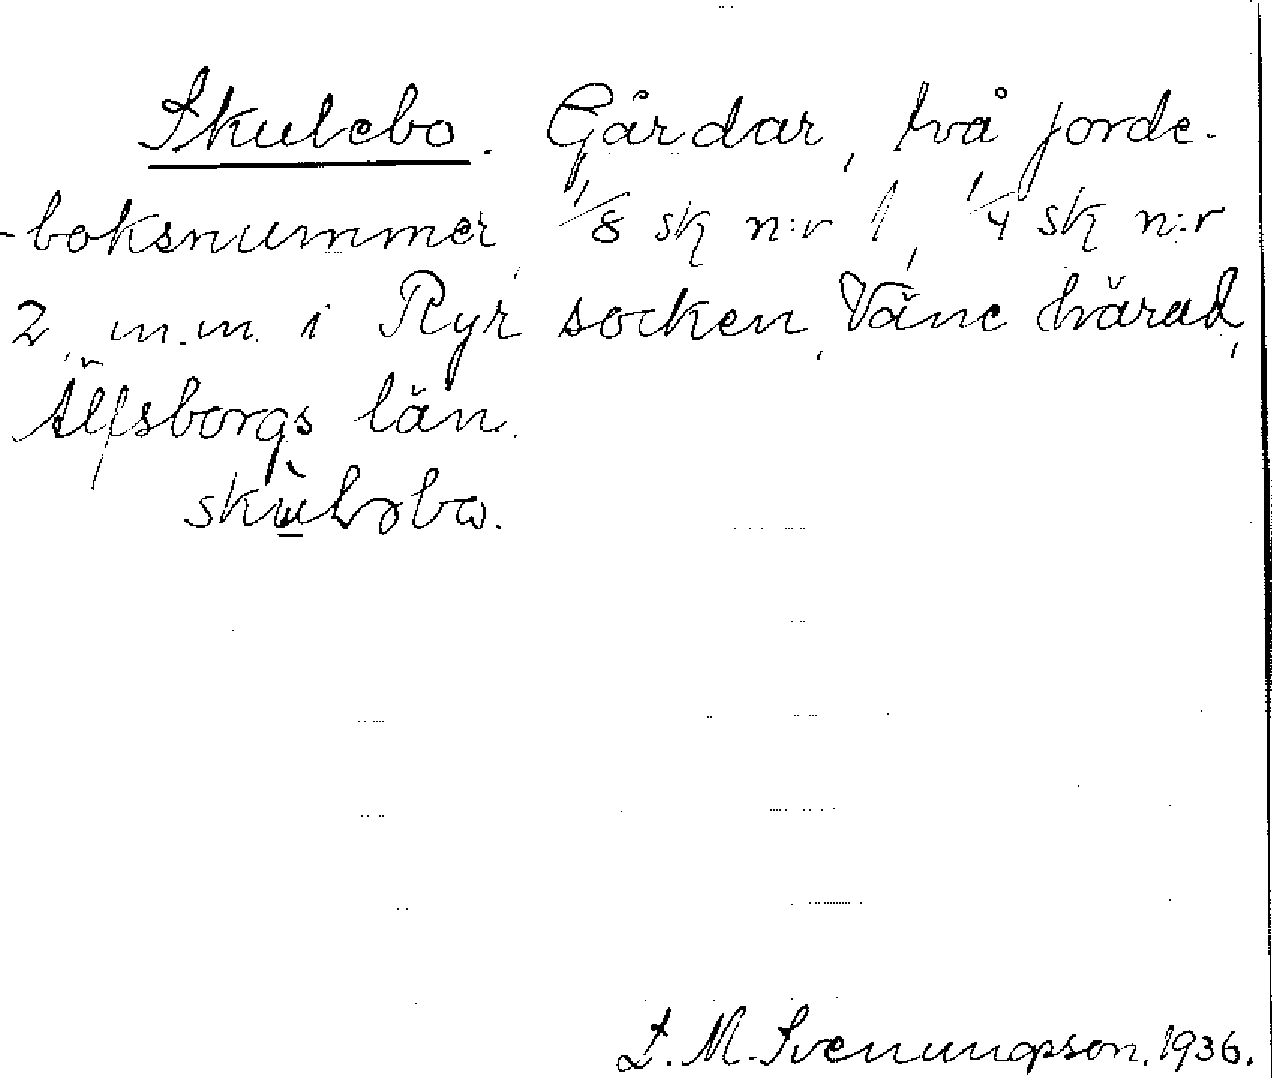 Skulebo. Gårdar, två jorde-
-boksnummer, 1/8 sk n:r 1, 1/4 sk n:r
2, m.m. i Ryr socken, Väne härad,
Älfsborgs län.
L. M. Svenungsson. 1936.